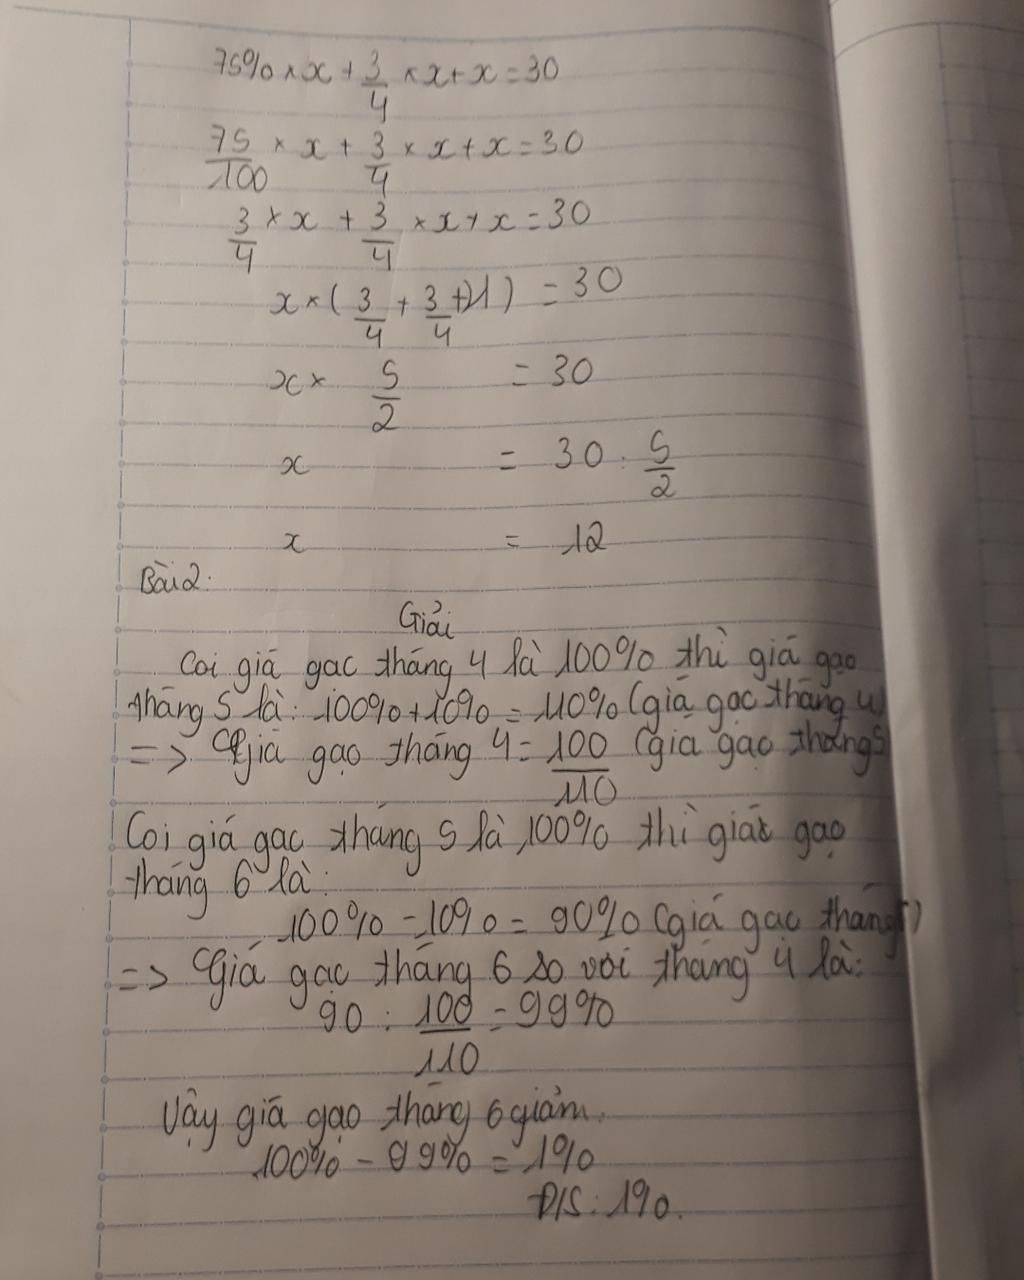 75% × x + 3/4 × x + x = 30
75/100 × x + 3/4 × x + x = 30
3/4 × x + 3/4 × x + x = 30
x × ( 3/4 + 3/4 + 1 ) = 30
x × 5/2 = 30
x = 30 : 5/2
x = 12
Bài 2:
Giải
Coi giá gạo tháng 4 là 100% thì giá gạo
tháng 5 là: 100% + 10% = 110% (giá gạo tháng 4)
=> Giá gạo tháng 4 = 100/110 (giá gạo tháng 5
Coi giá gạo tháng 5 là 100% thì giá gạo
tháng 6 là:
100% - 10% = 90% (giá gạo tháng 5)
=> Giá gạo tháng 6 so với tháng 4 là:
90 : 100/110 = 99%
Vậy giá gạo tháng 6 giảm.
100% - 99% = 1%
Đ/S: 1%.